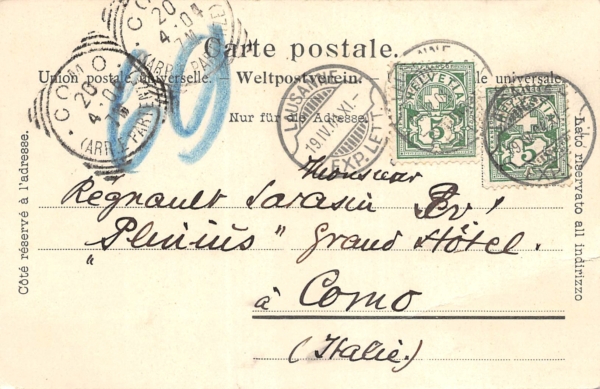 Carte postale.
Union postale universelle. — Weltpostverein. — le universale
Nur für die Adresse.
Côté réservé à l'adresse.
Lato riservato all indirizzo
COMO
20
4·04
7M
(ARR E PARTENZE)
COMO
20
4·04
7M
(ARR E PAR
LAUSANNE
19.IV.04 XI.–
EXP. LETT.
HELVETIA
5
5
LAUSANNE
EXP. LETT.
69
Monsieur
Regnault Sarasin
"Plinius" Grand Hôtel.
à Como
(Italie.)